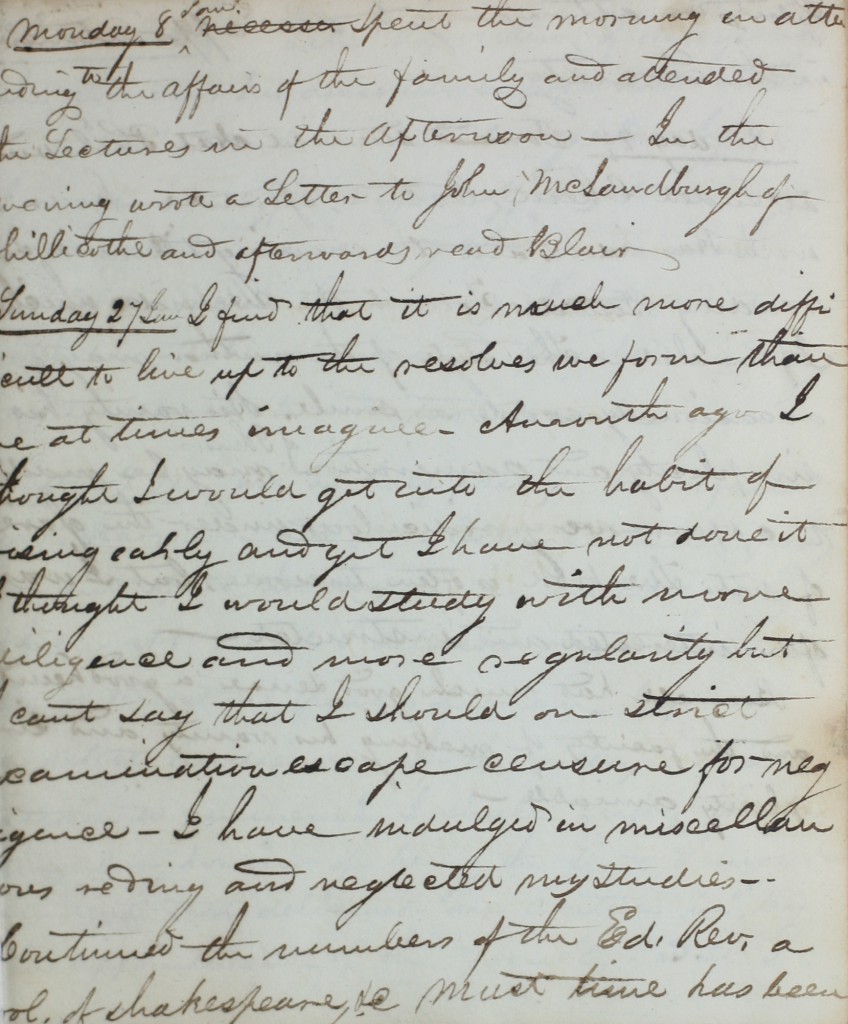 Monday 8 Jan. necesser Spent the morning in atte
nding to the affairs of the family and attended
the Lectures in the Afternoon — In the
evening wrote a Letter to John McLandburgh of
hillicothe and afterwards read Blair
Sunday 27 Jan I find that it is much more diffi
cult to live up to the resolves we form than
we at times imagine - A month ago I
thought I would get into the habit of
rising eahly and yet I have not done it
I thought I would study with more
diligence and more regularity but
I cant say that I should on strict
examination escape censure for neg
igence - I have indulged in miscellan
ous reding and neglected my studies -
Continued the numbers of the Ed. Rev. a
vol. of Shakespeare, &c must time has been